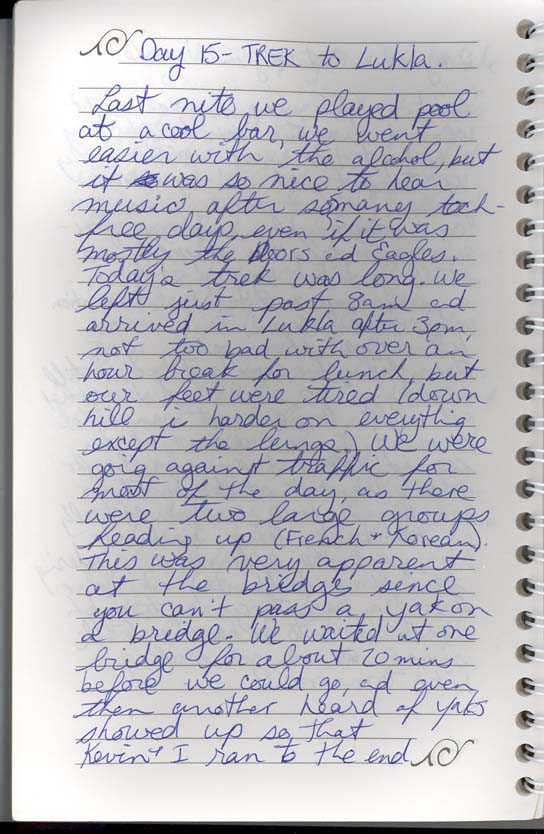 Day 15 - TREK to Lukla.
Last nite we played pool
at a cool bar, we went
easier with the alcohol, but
it was so nice to hear
music after so many tech-
free days even if it was
mostly the Doors ad Eagles.
Today's trek was long. We
left just past 8am ad
arrived in Lukla after 3pm,
not too bad with over an
hour break for lunch, but
our feet were tired (down
hill is harder on everything
except the lungs.) We were
going against traffic for
most of the day, as there
were two large groups
heading up (French + Korean).
This was very apparent
at the bridges since
you can't pass a yak on
a bridge. We waited at one
bridge for about 20 mins
before we could go, ad even
then another hoard of yaks
showed up so that
Kevin + I ran to the end